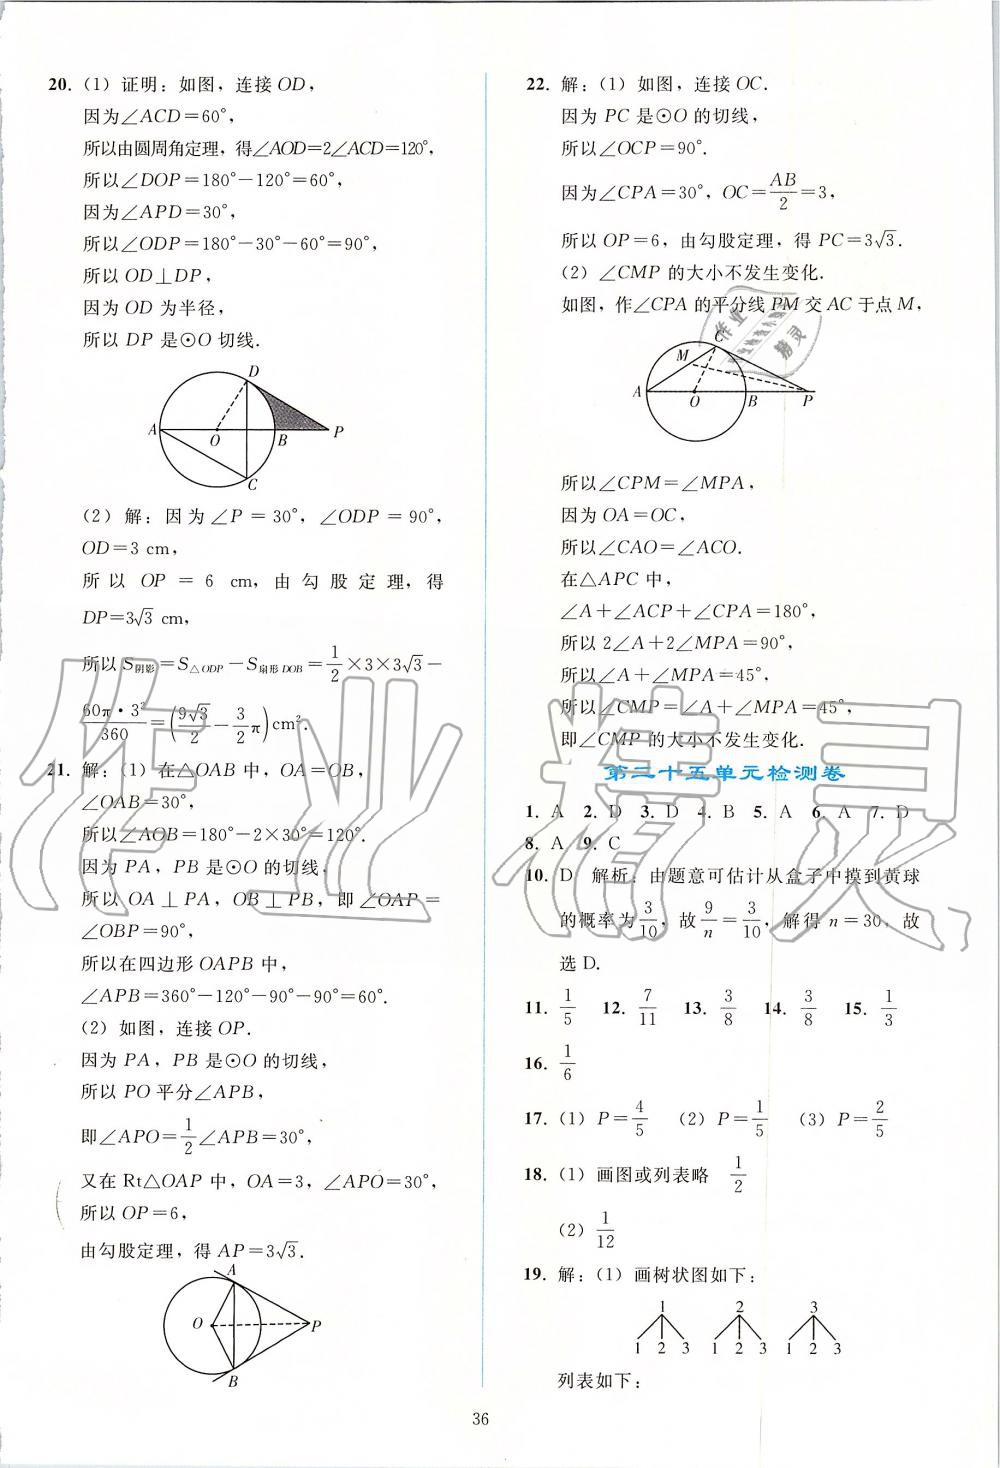 20. (1) 证明：如图，连接 OD，
因为∠ACD＝60°，
所以由圆周角定理，得∠AOD＝2∠ACD＝120°，
所以∠DOP＝180°－120°＝60°，
因为∠APD＝30°，
所以∠ODP＝180°－30°－60°＝90°，
所以 OD⊥DP，
因为 OD 为半径，
所以 DP 是⊙O 切线.
D
A O B P
C
(2) 解：因为∠P＝30°，∠ODP＝90°，
OD＝3 cm，
所以 OP＝6 cm，由勾股定理，得
DP＝3√3 cm，
所以 S阴影＝S△ODP－S扇形DOB＝1/2×3×3√3－
60π·3²/360＝(9√3/2－3/2π)cm².
21. 解：(1) 在△OAB 中，OA＝OB，
∠OAB＝30°，
所以∠AOB＝180°－2×30°＝120°.
因为 PA，PB 是⊙O 的切线，
所以 OA⊥PA，OB⊥PB，即∠OAP＝
∠OBP＝90°，
所以在四边形 OAPB 中，
∠APB＝360°－120°－90°－90°＝60°.
(2) 如图，连接 OP.
因为 PA，PB 是⊙O 的切线，
所以 PO 平分∠APB，
即∠APO＝1/2∠APB＝30°，
又在 Rt△OAP 中，OA＝3，∠APO＝30°，
所以 OP＝6，
由勾股定理，得 AP＝3√3.
A
O P
B
22. 解：(1) 如图，连接 OC.
因为 PC 是⊙O 的切线，
所以∠OCP＝90°.
因为∠CPA＝30°，OC＝AB/2＝3，
所以 OP＝6，由勾股定理，得 PC＝3√3.
(2) ∠CMP 的大小不发生变化.
如图，作∠CPA 的平分线 PM 交 AC 于点 M，
C
M
A O B P
所以∠CPM＝∠MPA，
因为 OA＝OC，
所以∠CAO＝∠ACO.
在△APC 中，
∠A＋∠ACP＋∠CPA＝180°，
所以 2∠A＋2∠MPA＝90°，
所以∠A＋∠MPA＝45°，
所以∠CMP＝∠A＋∠MPA＝45°，
即∠CMP 的大小不发生变化.
第二十五单元检测卷
1. A 2. D 3. D 4. B 5. A 6. A 7. D
8. A 9. C
10. D 解析：由题意可估计从盒子中摸到黄球
的概率为3/10，故9/n＝3/10，解得 n＝30，故
选 D.
11. 1/5 12. 7/11 13. 3/8 14. 3/8 15. 1/3
16. 1/6
17. (1) P＝4/5 (2) P＝1/5 (3) P＝2/5
18. (1) 画图或列表略 1/2
(2) 1/12
19. 解：(1) 画树状图如下：
1 2 3
1 2 3 1 2 3 1 2 3
列表如下：
36
作业精灵
作业精灵